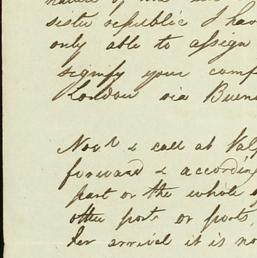 nature of the
sister republic I have
only able to assign
signify your comp
London via Buen
Novr & call at Val
forward & according
part or the whole of
other ports or ports
her arrival it is no